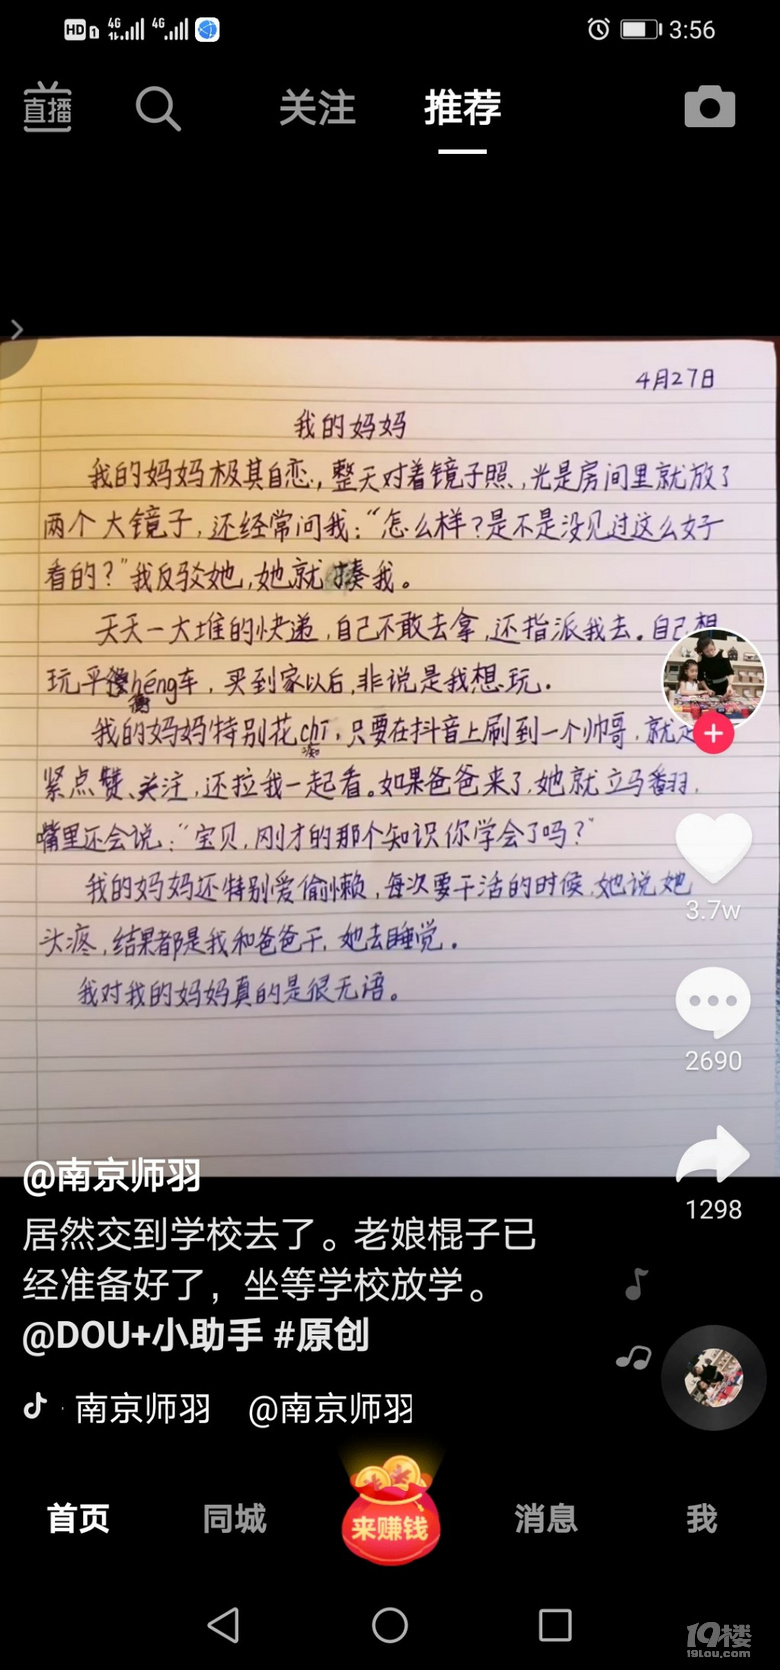 HD 1 4G 4G 3:56
直播 关注 推荐
4月27日
我的妈妈
我的妈妈极其自恋,整天对着镜子照,光是房间里就放了
两个大镜子,还经常问我:“怎么样?是不是没见过这么好
看的?”我反驳她,她就揍我。
天天一大堆的快递,自己不敢去拿,还指派我去。自己想
玩平衡héng车,买到家以后,非说是我想玩.
我的妈妈特别花chī,只要在抖音上刷到一个帅哥,就
紧点赞、关注,还拉我一起看。如果爸爸来了,她就立马翻,
嘴里还会说:“宝贝,刚才的那个知识你学会了吗?”
我的妈妈还特别爱偷懒,每次要干活的时候,她说她
头疼,结果都是我和爸爸干,她去睡觉.
我对我的妈妈真的是很无语。
3.7w
2690
1298
@南京师羽
居然交到学校去了。老娘棍子已
经准备好了,坐等学校放学。
@DOU+小助手 #原创
南京师羽 @南京师羽
首页 同城 来赚钱 消息 我
19楼
19lou.com